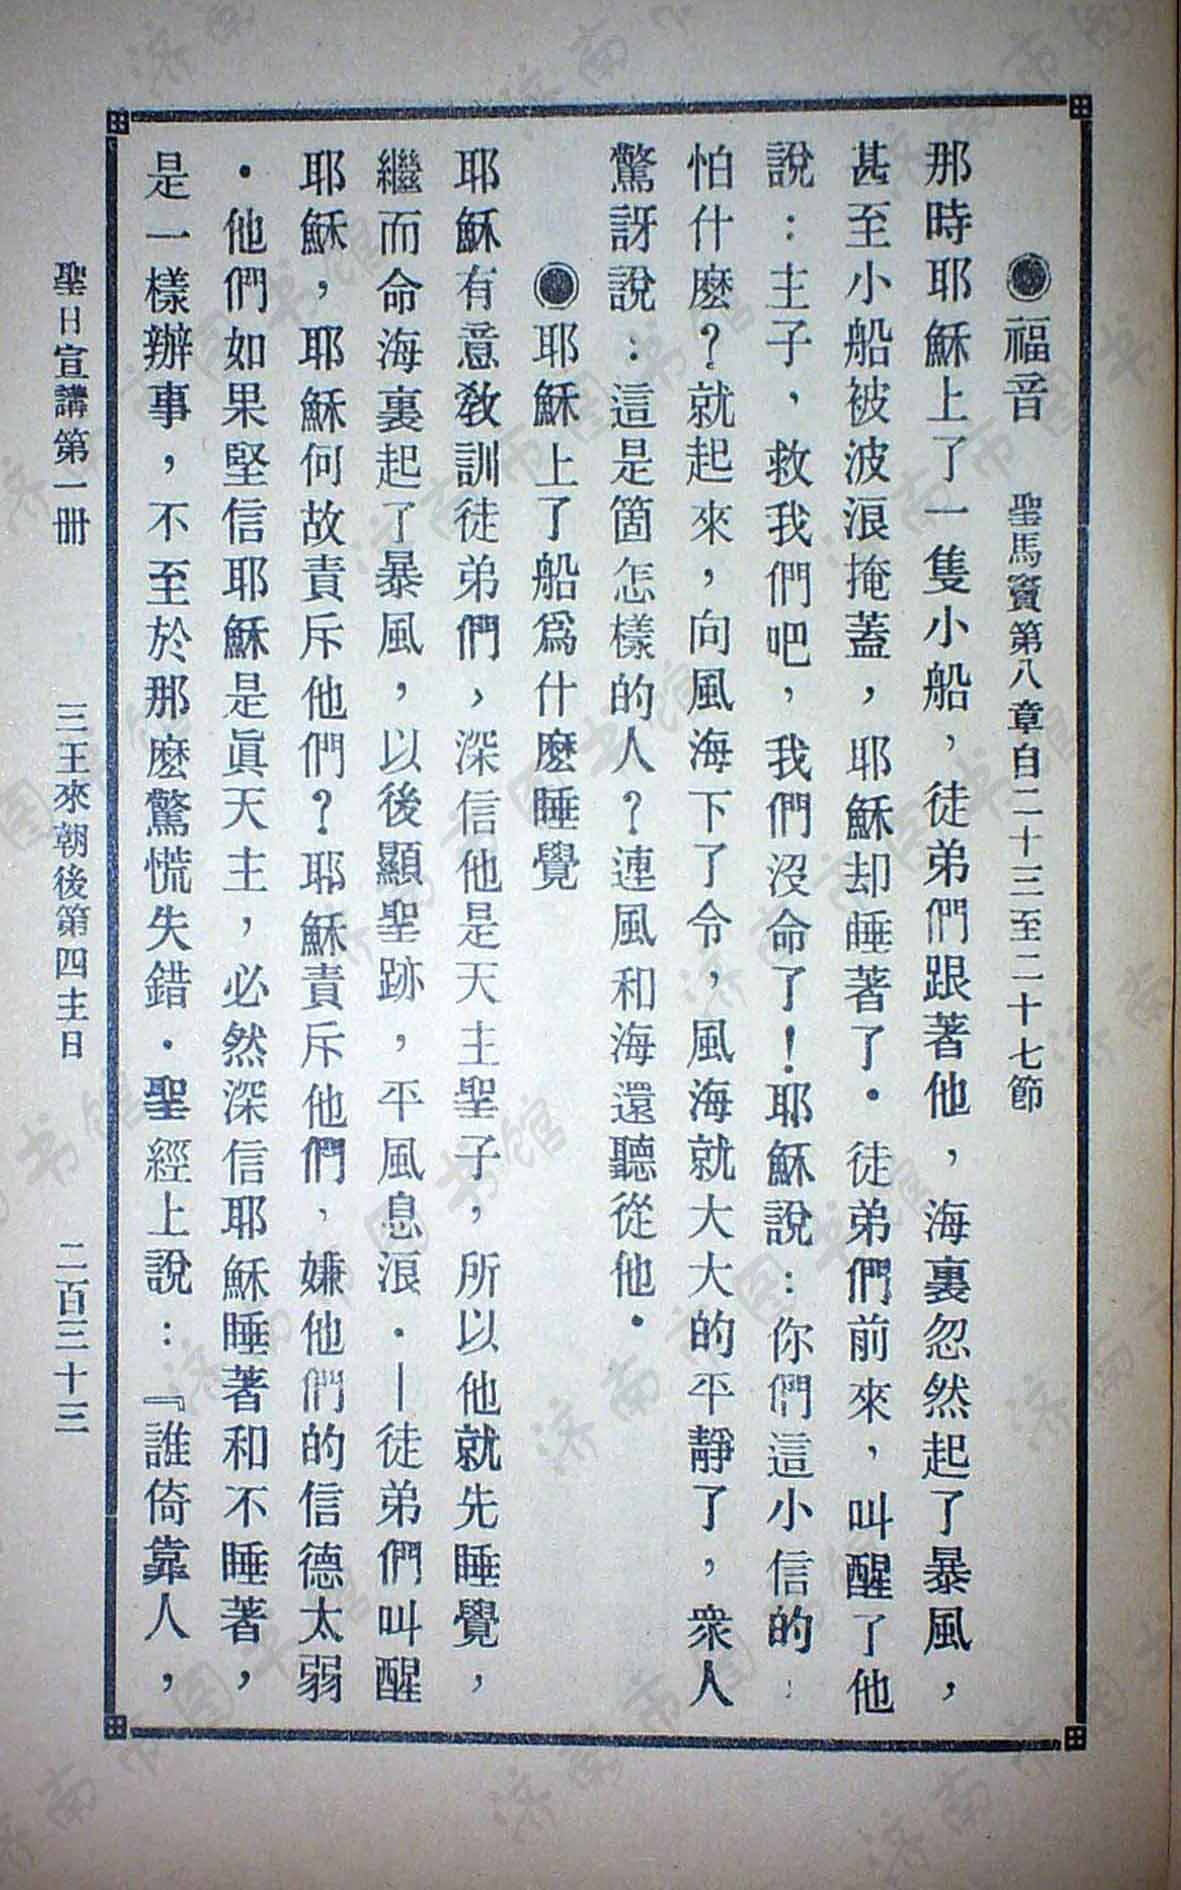 ◉福音　聖馬竇第八章自二十三至二十七節
那時耶穌上了一隻小船，徒弟們跟著他，海裏忽然起了暴風，
甚至小船被波浪掩蓋，耶穌却睡著了．徒弟們前來，叫醒了他
說：主子，救我們吧，我們沒命了！耶穌說：你們這小信的，
怕什麽？就起來，向風海下了令，風海就大大的平靜了，衆人
驚訝說：這是箇怎樣的人？連風和海還聽從他．
◉耶穌上了船爲什麽睡覺
耶穌有意教訓徒弟們，深信他是天主聖子，所以他就先睡覺，
繼而命海裏起了暴風，以後顯聖跡，平風息浪．—徒弟們叫醒
耶穌，耶穌何故責斥他們？耶穌責斥他們，嫌他們的信德太弱
．他們如果堅信耶穌是眞天主，必然深信耶穌睡著和不睡著，
是一樣辦事，不至於那麽驚慌失錯．聖經上說：『誰倚靠人，
聖日宣講第一册　三王來朝後第四主日　二百三十三
济南市图书馆